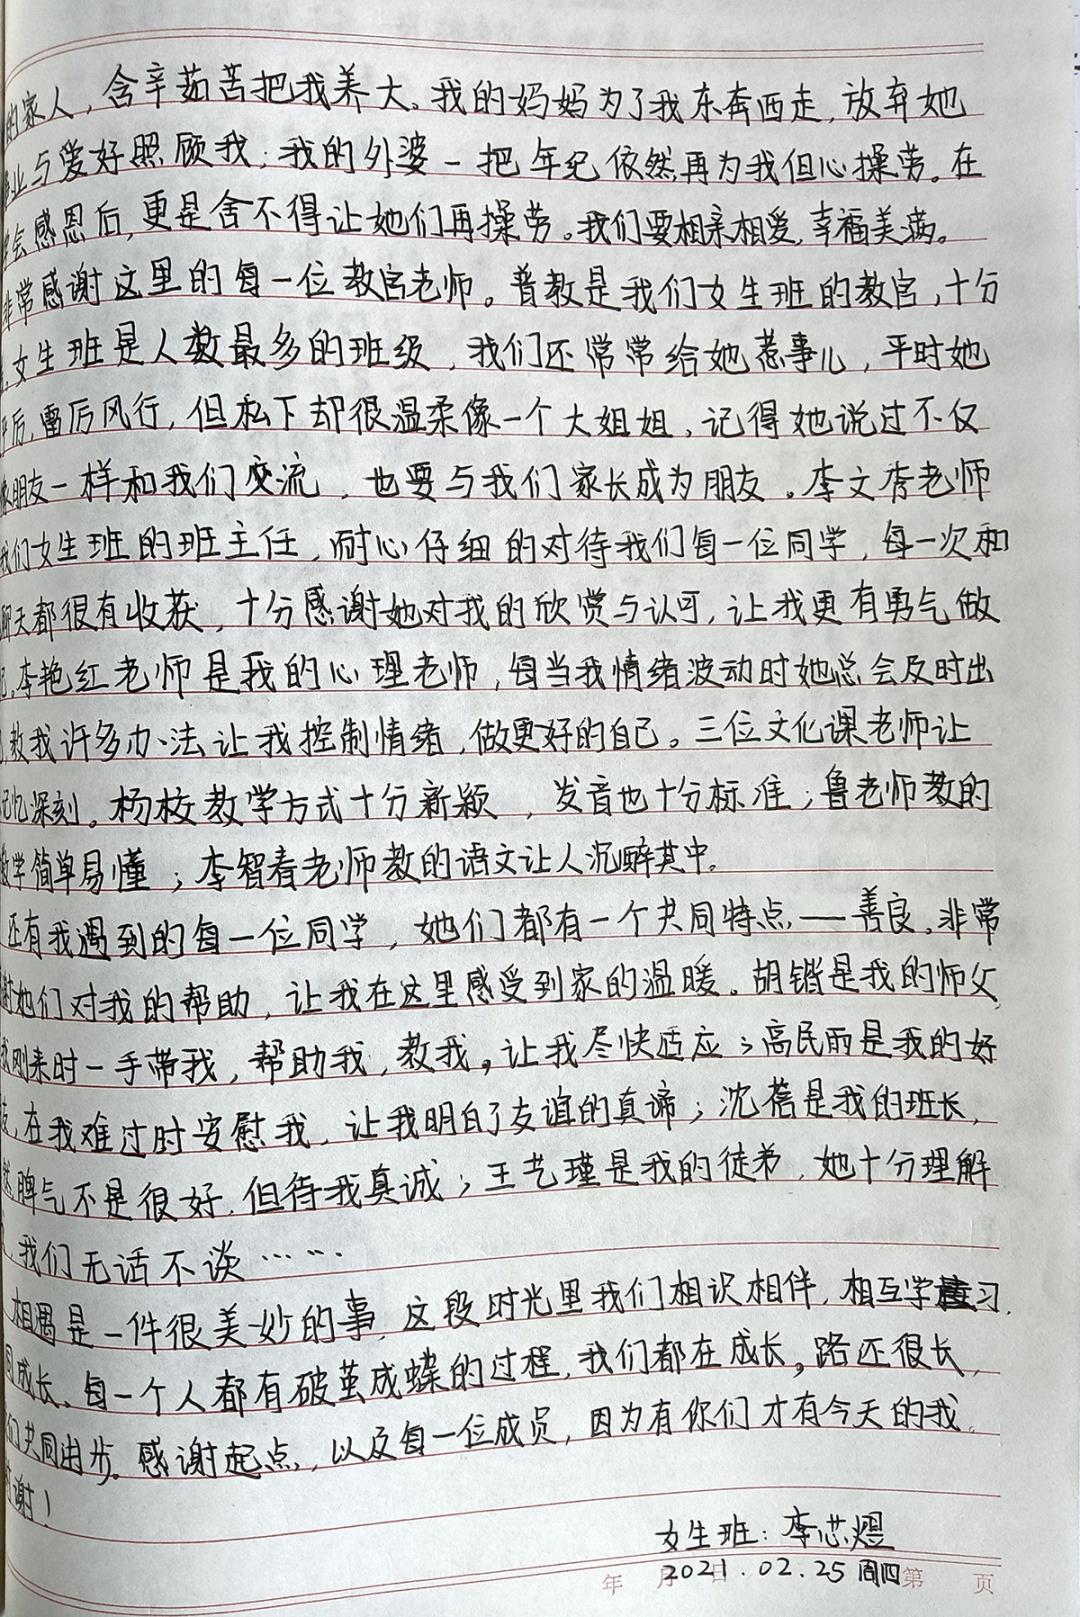 的家人，含辛茹苦把我养大。我的妈妈为了我东奔西走，放弃她
业与爱好照顾我；我的外婆一把年纪依然再为我但心操劳。在
学会感恩后，更是舍不得让她们再操劳。我们要相亲相爱，幸福美满。
非常感谢这里的每一位教官老师。普教是我们女生班的教官，十分
女生班是人数最多的班级，我们还常常给她惹事儿，平时她
严厉，雷厉风行，但私下却很温柔像一个大姐姐，记得她说过不仅
像朋友一样和我们交流，也要与我们家长成为朋友。李文杏老师
我们女生班的班主任，耐心仔细的对待我们每一位同学，每一次和
聊天都很有收获，十分感谢她对我的欣赏与认可，让我更有勇气做
己。李艳红老师是我的心理老师，每当我情绪波动时她总会及时出
教我许多办法让我控制情绪，做更好的自己。三位文化课老师让
记忆深刻。杨校教学方式十分新颖，发音也十分标准；鲁老师教的
数学简单易懂；李智春老师教的语文让人沉醉其中。
还有我遇到的每一位同学，她们都有一个共同特点——善良。非常
谢她们对我的帮助，让我在这里感受到家的温暖。胡锴是我的师父，
我刚来时一手带我，帮助我，教我。让我尽快适应；高民雨是我的好
友，在我难过时安慰我，让我明白了友谊的真谛；沈蓓是我的班长，
然脾气不是很好，但待我真诚；王艺瑾是我的徒弟，她十分理解
我们无话不谈……
相遇是一件很美妙的事，这段时光里我们相识相伴，相互学习，
同成长。每一个人都有破茧成蝶的过程，我们都在成长。路还很长，
们共同出步。感谢起点，以及每一位成员，因为有你们才有今天的我。
谢谢！
女生班：李芯熠
2021.02.25 周四
年 月 日 第 页